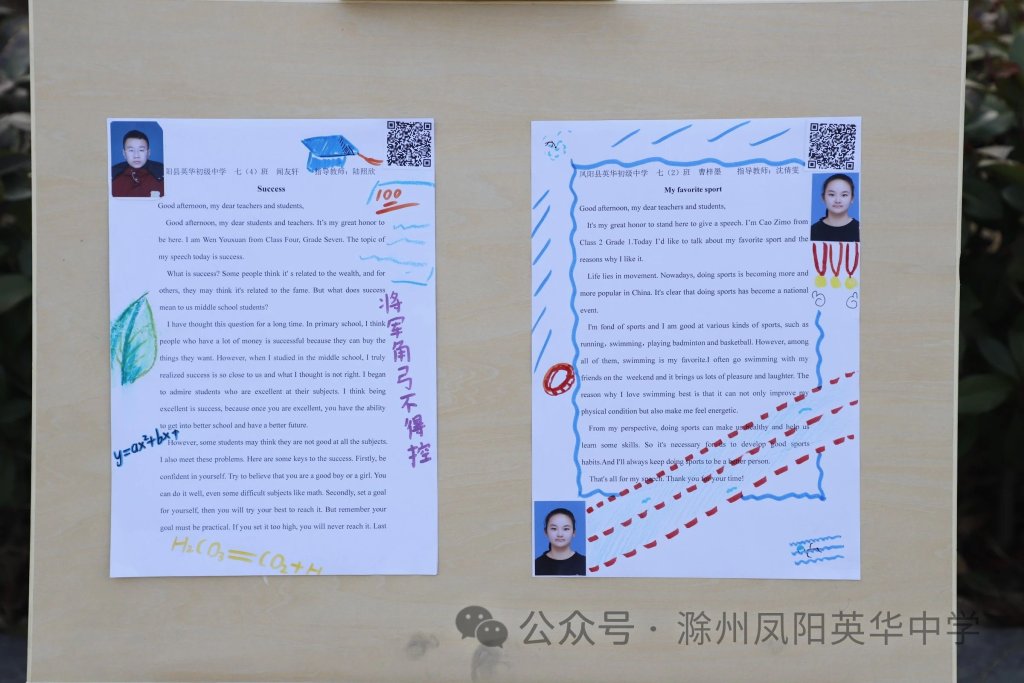 阳县英华初级中学 七（4）班 闻友轩 指导教师：陆照欣
Success
100
Good afternoon, my dear teachers and students,
Good afternoon, my dear students and teachers. It's my great honor to
be here. I am Wen Youxuan from Class Four, Grade Seven. The topic of
my speech today is success.
What is success? Some people think it' s related to the wealth, and for
others, they may think it's related to the fame. But what does success
mean to us middle school students?
I have thought this question for a long time. In primary school, I think
people who have a lot of money is successful because they can buy the
things they want. However, when I studied in the middle school, I truly
realized success is so close to us and what I thought is not right. I began
to admire students who are excellent at their subjects. I think being
excellent is success, because once you are excellent, you have the ability
to get into better school and have a better future.
However, some students may think they are not good at all the subjects.
I also meet these problems. Here are some keys to the success. Firstly, be
confident in yourself. Try to believe that you are a good boy or a girl. You
can do it well, even some difficult subjects like math. Secondly, set a goal
for yourself, then you will try your best to reach it. But remember your
goal must be practical. If you set it too high, you will never reach it. Last
将军角弓不得控
y=ax²+bx+
H₂CO₃=CO₂+H
凤阳县英华初级中学 七（2）班 曹梓墨 指导教师：沈倩雯
My favorite sport
Good afternoon, my dear teachers and students,
It's my great honor to stand here to give a speech. I'm Cao Zimo from
Class 2 Grade 1.Today I'd like to talk about my favorite sport and the
reasons why I like it.
Life lies in movement. Nowadays, doing sports is becoming more and
more popular in China. It's clear that doing sports has become a national
event.
I'm fond of sports and I am good at various kinds of sports, such as
running, swimming, playing badminton and basketball. However, among
all of them, swimming is my favorite.I often go swimming with my
friends on the weekend and it brings us lots of pleasure and laughter. The
reason why I love swimming best is that it can not only improve my
physical condition but also make me feel energetic.
From my perspective, doing sports can make us healthy and help us
learn some skills. So it's necessary for us to develop good sports
habits.And I'll always keep doing sports to be a better person.
That's all for my speech. Thank you for your time!
公众号 · 滁州凤阳英华中学